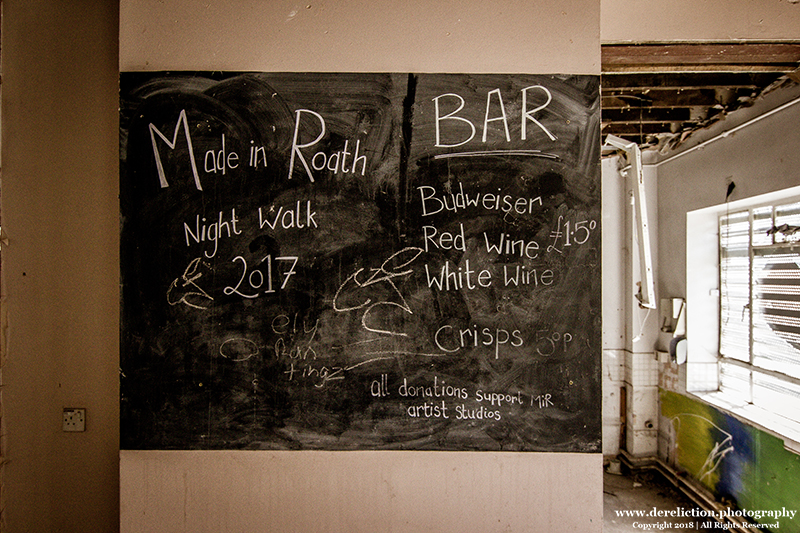 Made in Roath
Night Walk
2017
ely
tingz
BAR
Budweiser
Red Wine £1.50
White Wine
Crisps 50p
all donations support MiR
artist studios
www.dereliction.photography
Copyright 2018 | All Rights Reserved